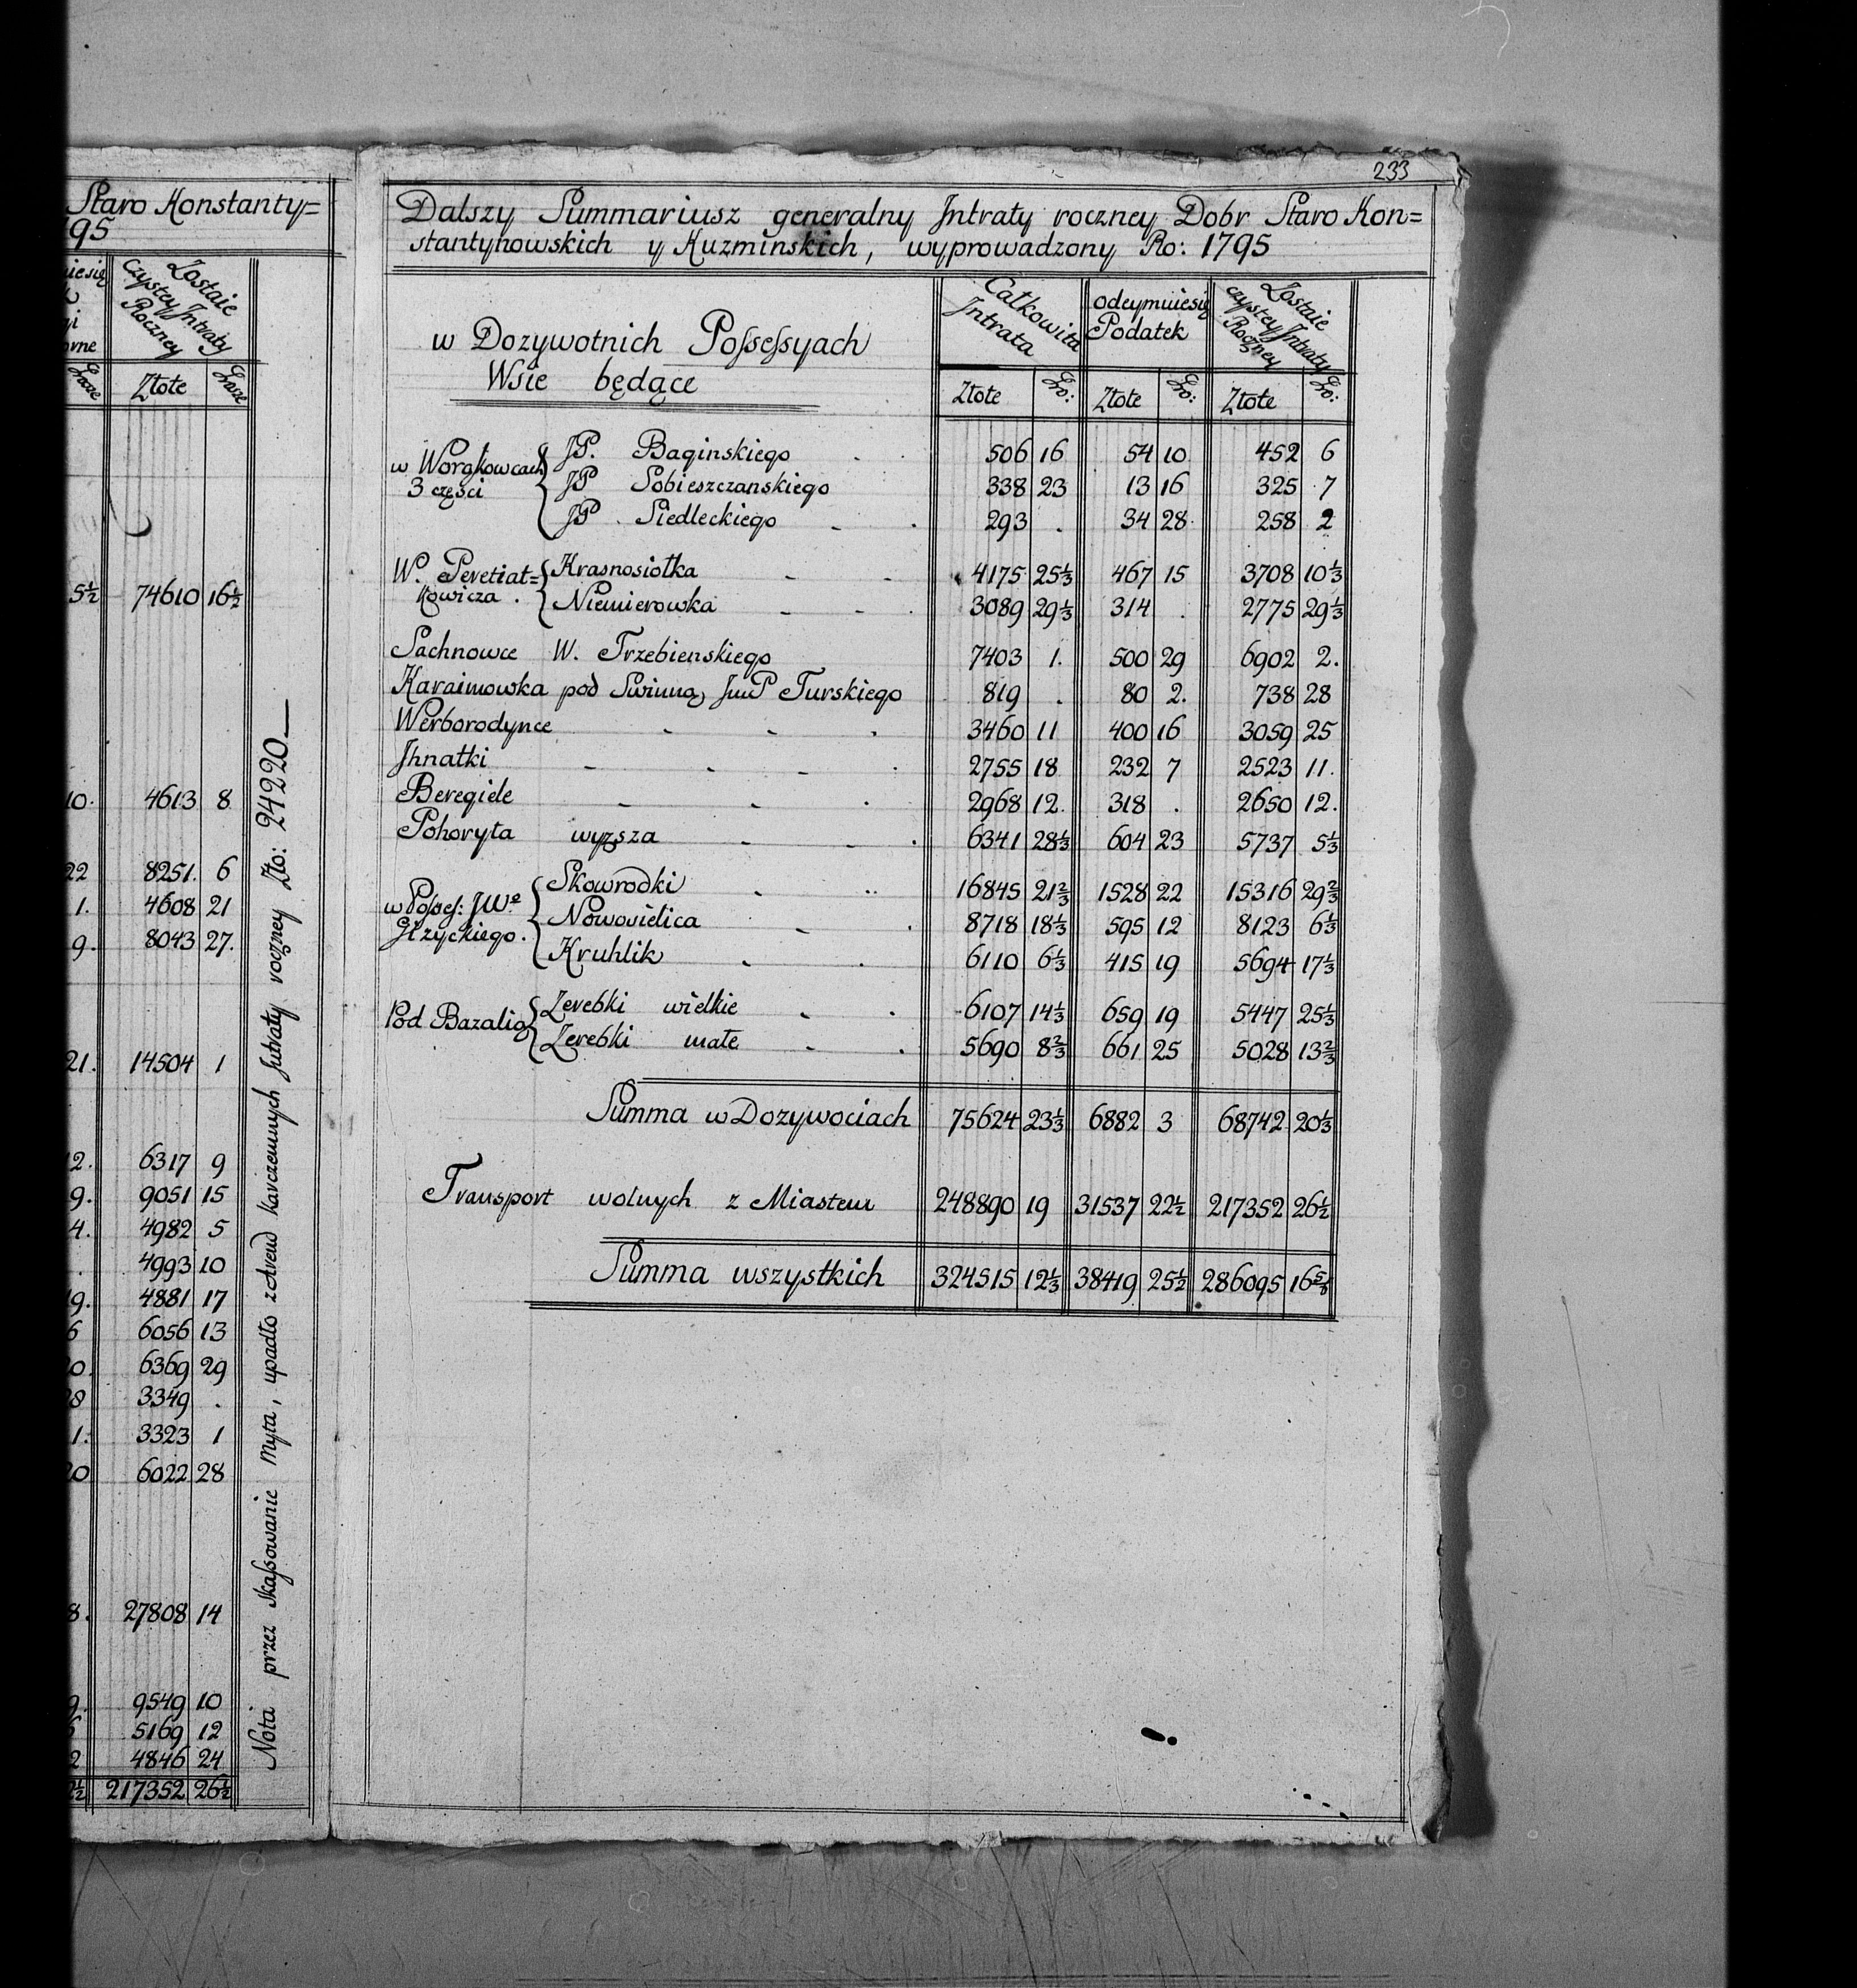 Staro Konstanty=
95
Zostaie
czystey Intraty
Roczney
Złote
74610 16½
10. 4613 8
22 8251. 6
1. 4608 21
9. 8043 27.
21. 14504 1
2. 6317 9
9. 9051 15
4. 4982 5
4993 10
9. 4881 17
6 6056 13
0. 6369 29
8 3349 .
1. 3323 1
20 6022 28
8. 27808 14
9. 9549 10
5169 12
2 4846 24
217352 26½
Nota przez skassowanie Myta, upadło z Arend karczemnych Intraty roczney Zło: 24220
233
Dalszy Summariusz generalny Intraty roczney Dobr Staro Kon=
stantynowskich y Kuzminskich, wyprowadzony Ro: 1795
w Dozywotnich Possessyach
Wsie będące
Całkowita Intrata
odeymuiesię Podatek
Zostaie czystey Intraty Roczney
Złote Gro: Złote Gro: Złote Gro:
w Worgkowcach 3 części
JP. Baginskiego 506 16 54 10 452 6
JP Sobieszczanskiego 338 23 13 16 325 7
JP Siedleckiego 293 . 34 28 258 2
W. Peretiat=kowicza.
Krasnosiołka 4175 25⅓ 467 15 3708 10⅓
Niemierowka 3089 29⅓ 314 . 2775 29⅓
Sachnowce W. Trzebienskiego 7403 1. 500 29 6902 2.
Karaimowka pod Swinną JmP Turskiego 819 . 80 2. 738 28
Werborodynce 3460 11 400 16 3059 25
Jhnatki 2755 18 232 7 2523 11.
Beregiele 2968 12. 318 . 2650 12.
Pohoryła wyzsza 6341 28⅓ 604 23 5737 5⅓
w Posses: JWo Giżyckiego.
Skowrodki 16845 21⅔ 1528 22 15316 29⅔
Nowosielica 8718 18⅓ 595 12 8123 6⅓
Kruhlik 6110 6⅓ 415 19 5694 17⅓
Pod Bazalią
Zerebki wielkie 6107 14⅓ 659 19 5447 25⅓
Zerebki małe 5690 8⅔ 661 25 5028 13⅔
Summa w Dozywociach 75624 23⅓ 6882 3 68742 20⅓
Transport wolnych z Miastem 248890 19 31537 22½ 217352 26½
Summa wszystkich 324515 12⅓ 38419 25½ 286095 16⅚